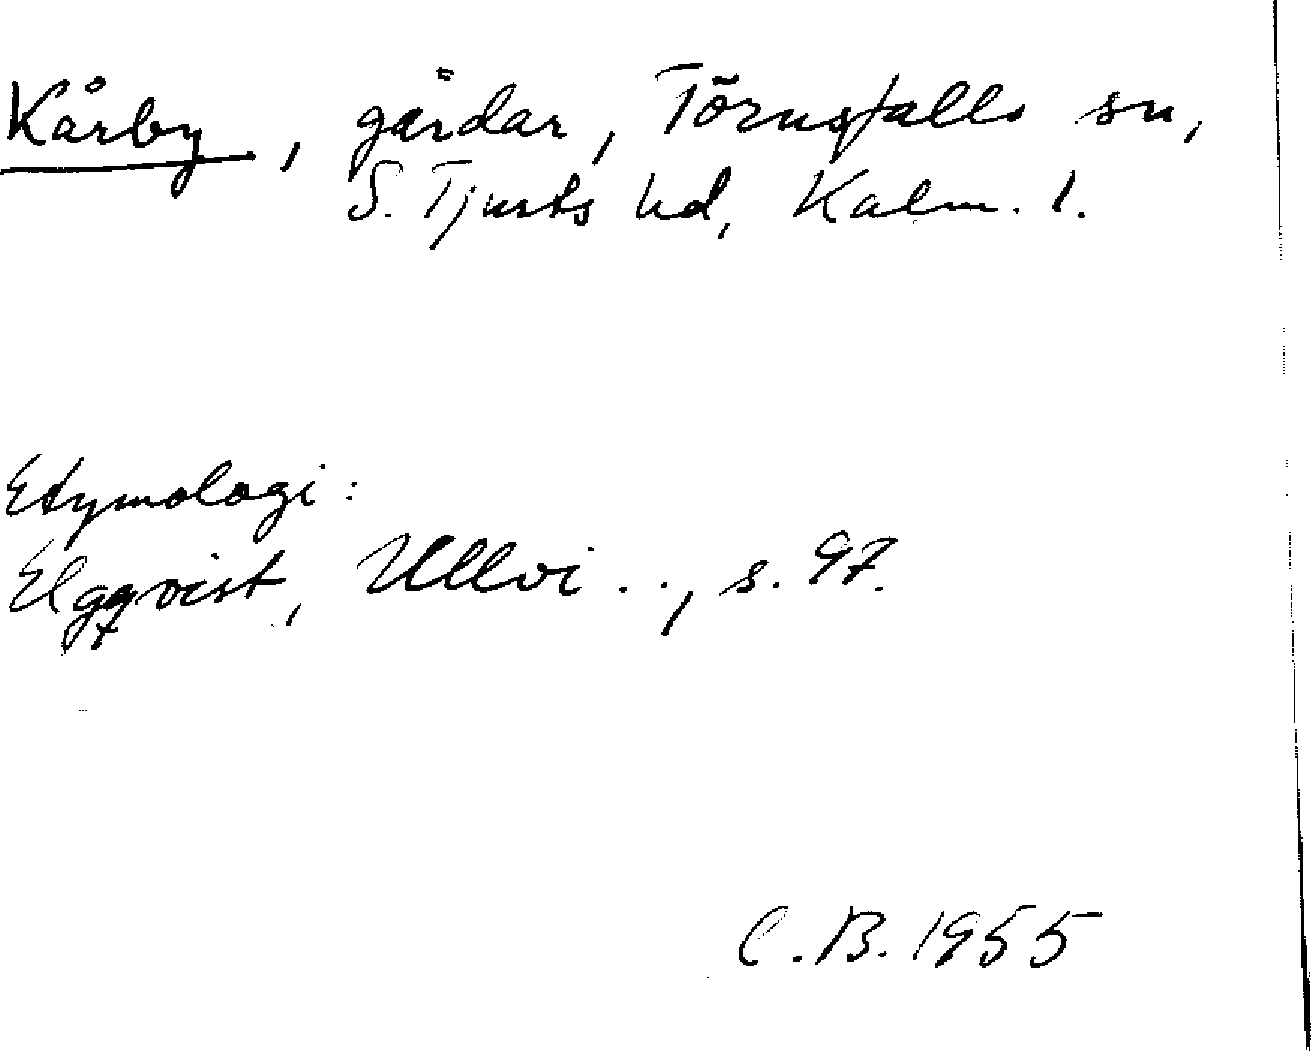 Kårby, gårdar, Törnsfalls sn,
S. Tjusts hd, Kalm. l.
Etymologi:
Elgqvist, Ullvi . . , s. 97.
C. B. 1955